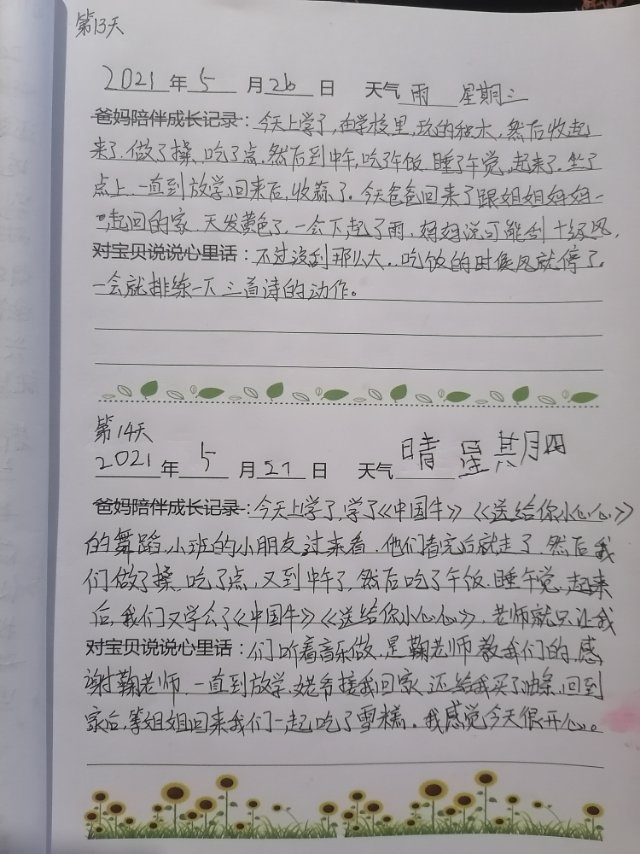 第13天
2021年5月26日 天气 雨 星期三
爸妈陪伴成长记录：今天上学了，在学校里，玩的积木，然后收起
来了，做了操，吃了点，然后到中午，吃午饭，睡了午觉，起来了，坐了
点上，一直到放学，回来后，收蒜了。今天爸爸回来了跟姐姐妈妈
一起回的家，天发黄色了，一会下起了雨，妈妈说可能刮十级风，
对宝贝说说心里话：不过没刮那么大，吃饭的时候风就停了，
一会就排练一下三首诗的动作。
第14天
2021年5月27日 天气 晴 星期四
爸妈陪伴成长记录：今天上学了，学了《中国牛》《送给你小心心》
的舞蹈，小班的小朋友过来看，他们看完后就走了，然后我
们做了操，吃了点，又到中午了，然后吃了午饭，睡午觉，起来
后，我们又学会了《中国牛》《送给你小心心》，老师就只让我
对宝贝说说心里话：们听着音乐做，是鞠老师教我们的，感
谢鞠老师，一直到放学，姥爷接我回家，还给我买了油条，回到
家后，等姐姐回来我们一起吃了雪糕。我感觉今天很开心。